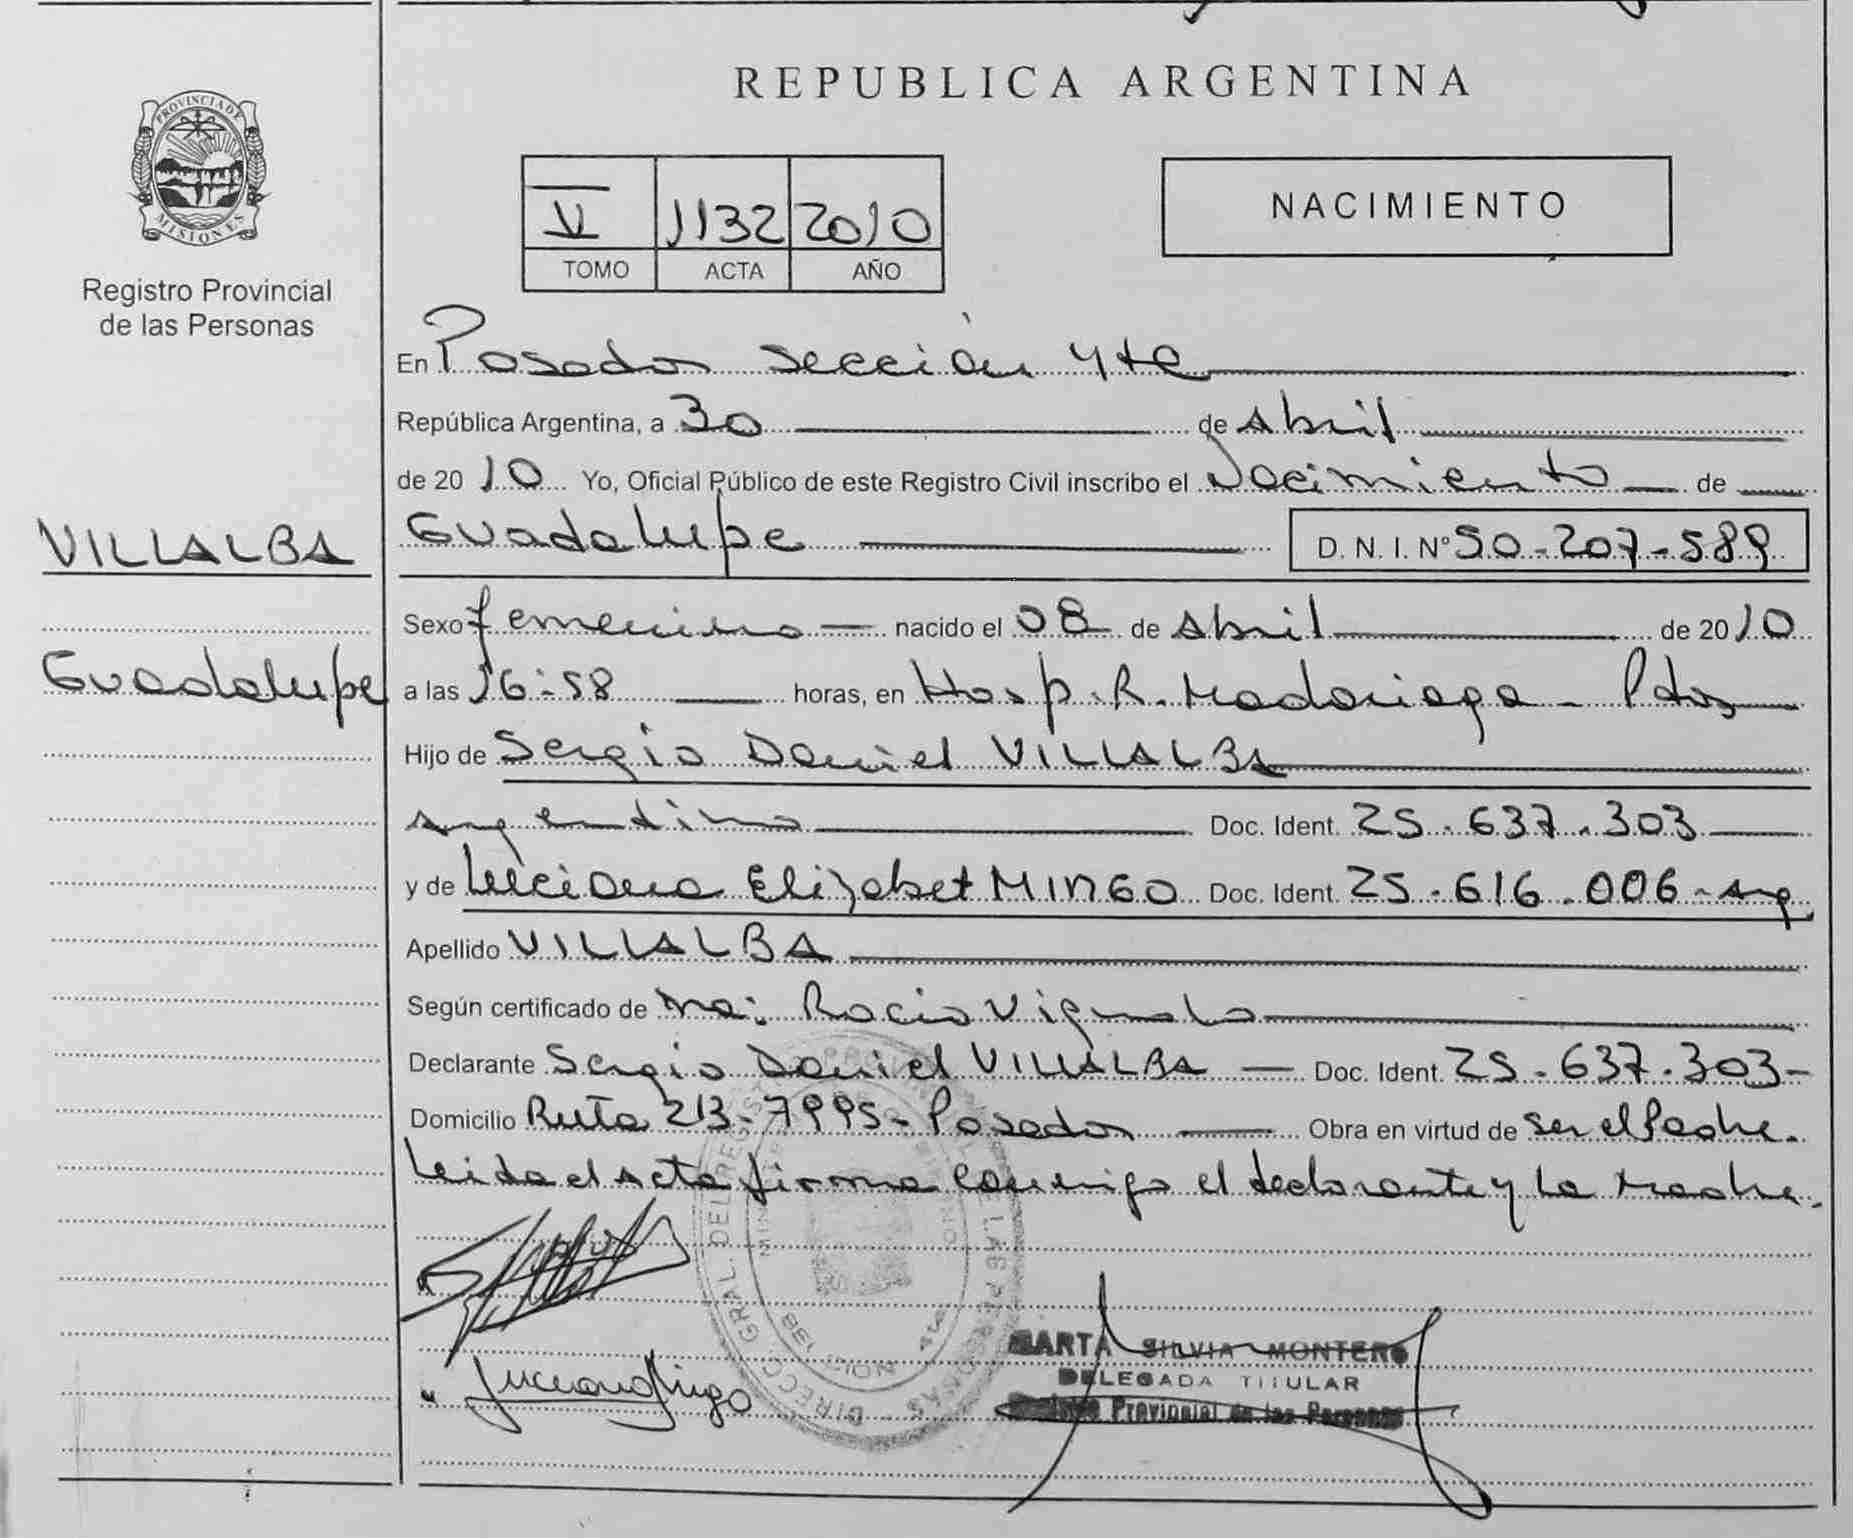 REPUBLICA ARGENTINA
PROVINCIA DE
MISIONES
Registro Provincial
de las Personas
V 1132 2010
TOMO ACTA AÑO
NACIMIENTO
En Posadas sección 4ta
República Argentina, a 30 de Abril
de 2010 Yo, Oficial Público de este Registro Civil inscribo el Nacimiento de
VILLALBA
Guadalupe D. N. I. Nº 50-207-589
Sexo femenino nacido el 08 de Abril de 2010
Guadalupe
a las 16:58 horas, en Hosp. R. Madariaga - Pdas
Hijo de Sergio Daniel VILLALBA
argentino Doc. Ident. 25.637.303
y de Luciana Elizabet MINGO Doc. Ident. 25.616.006 - arg
Apellido VILLALBA
Según certificado de Dra: Rocio
Declarante Sergio Daniel VILLALBA Doc. Ident. 25.637.303-
Domicilio Ruta 213-7995- Posadas Obra en virtud de ser el Padre.
Leida el Acta firma conmigo el declarante y la Madre.
DIRECC. GRAL. DEL REGISTRO PROVINCIAL DE LAS PERSONAS
Luciana Mingo
MARTA SILVIA MONTERO
DELEGADA TITULAR
Registro Provincial de las Personas